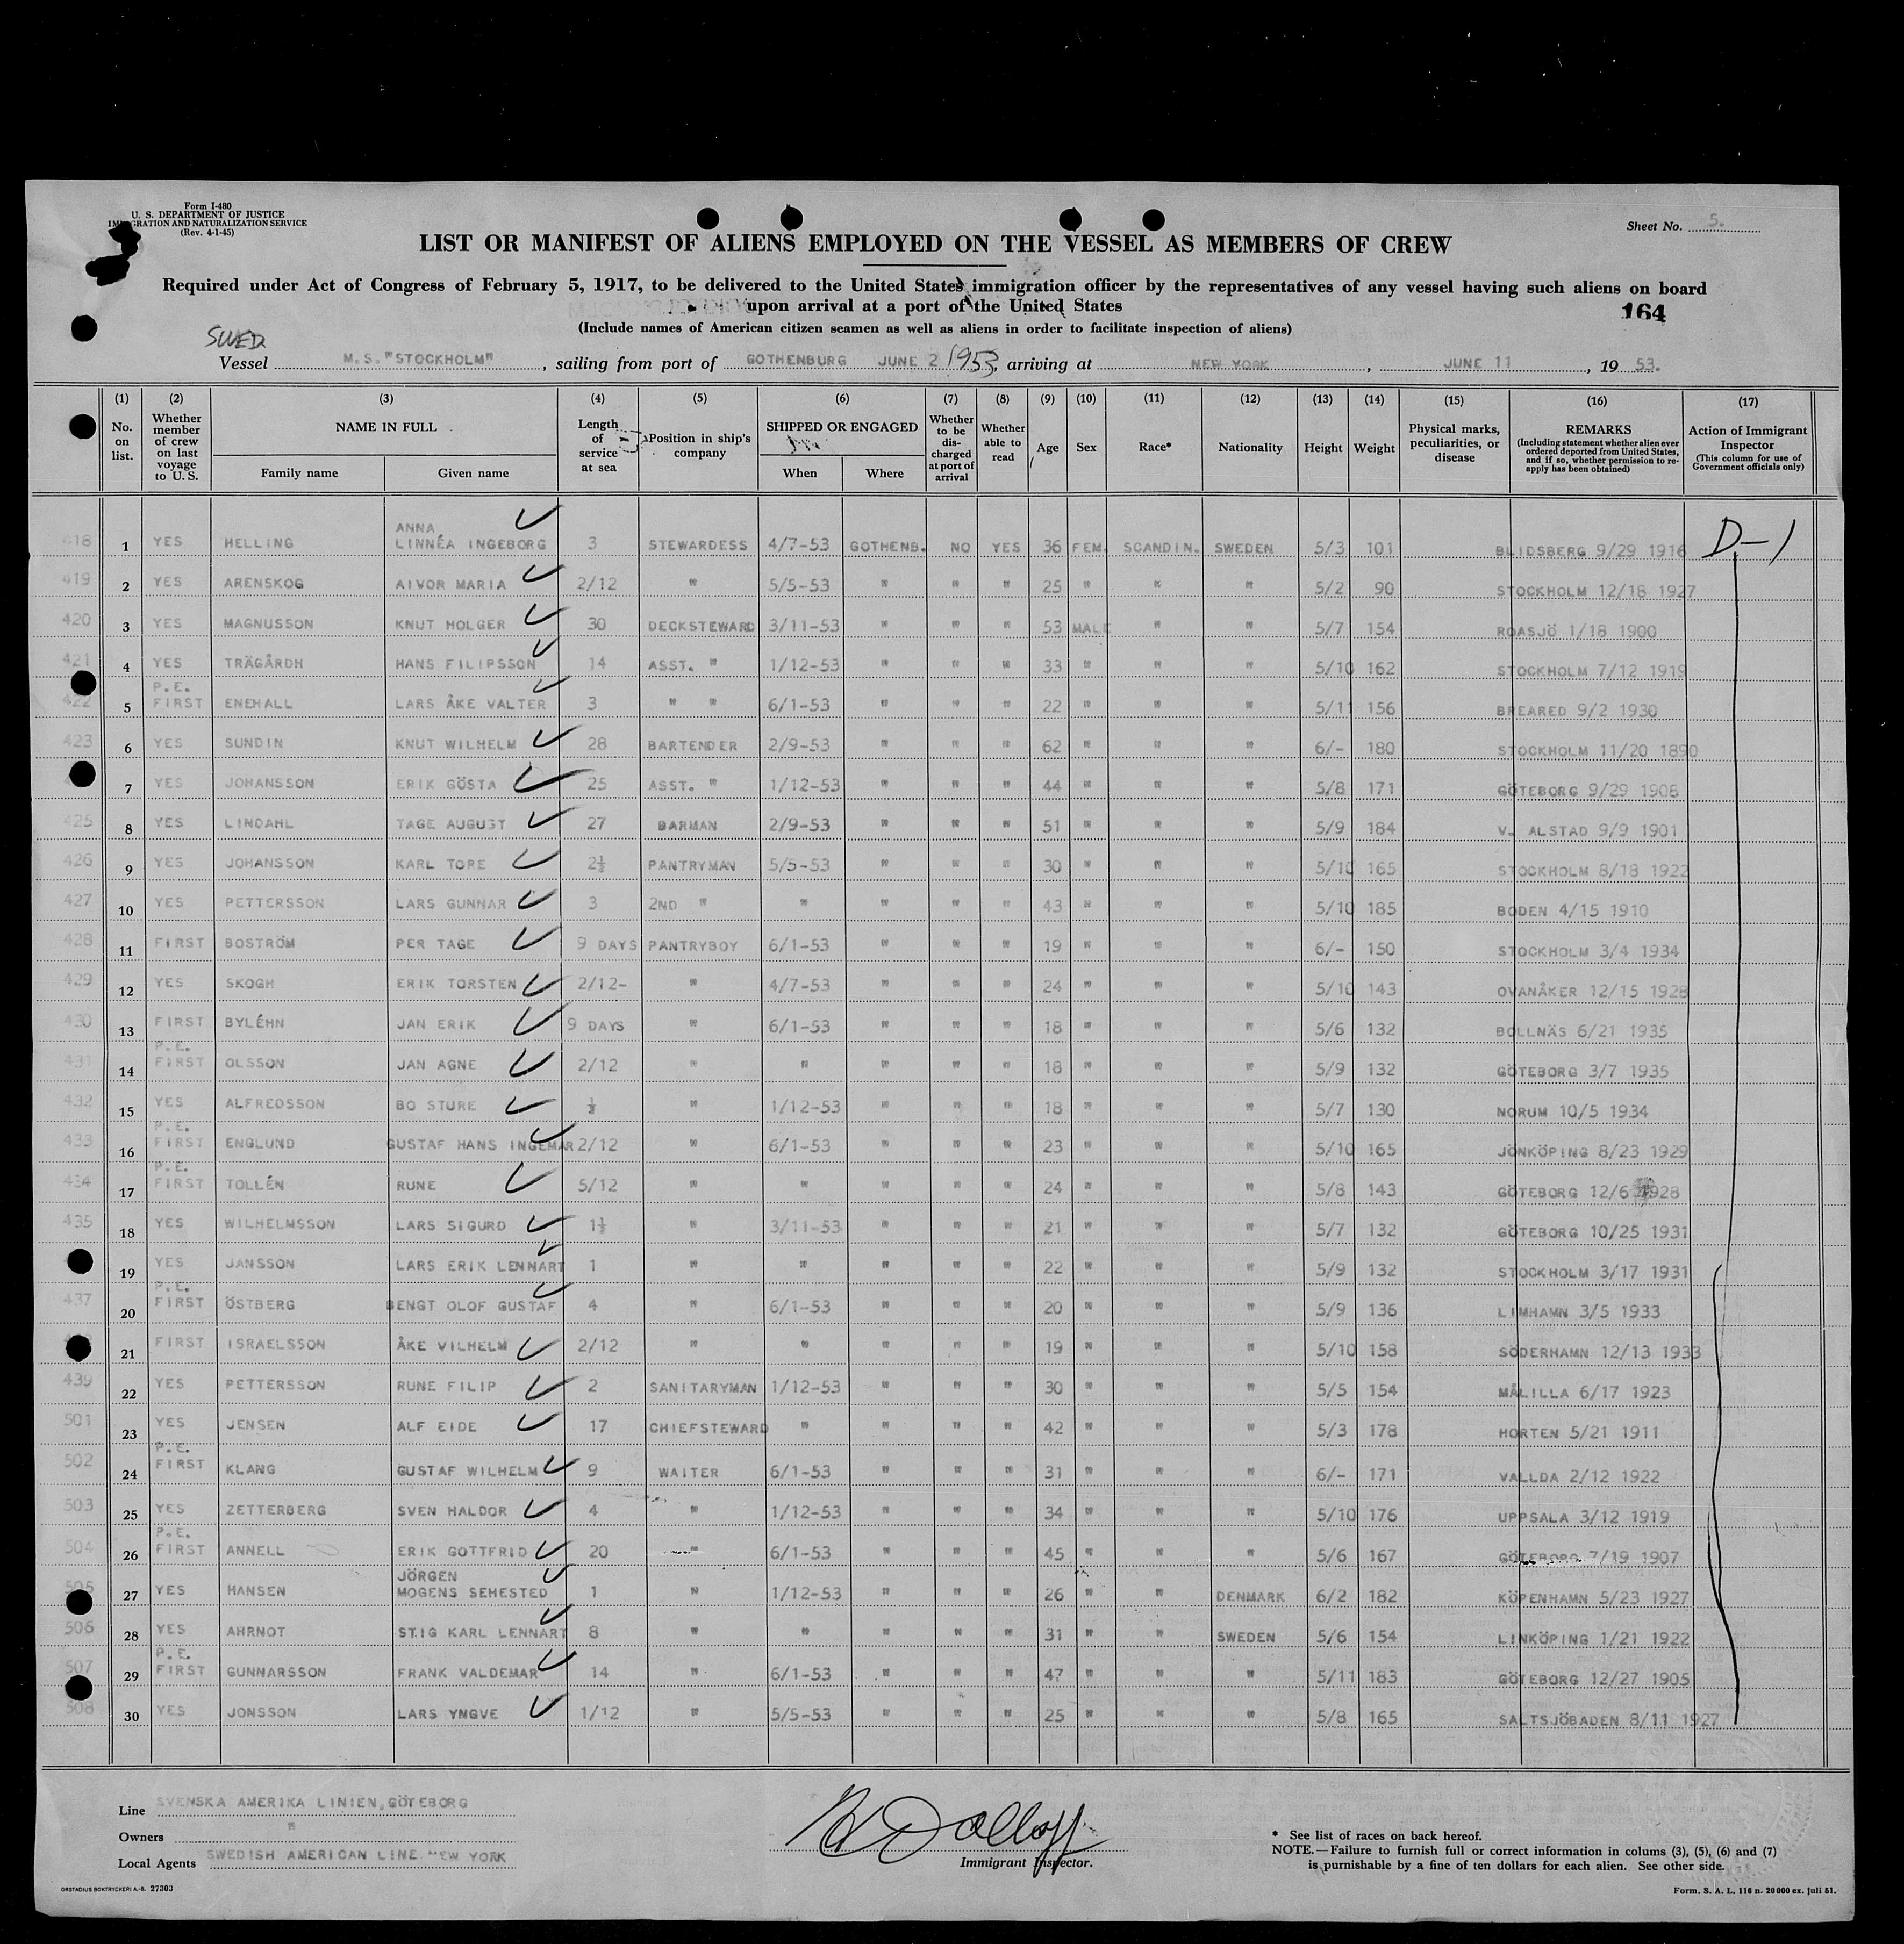 Form I-480
U. S. DEPARTMENT OF JUSTICE
IMMIGRATION AND NATURALIZATION SERVICE
(Rev. 4-1-45)
Sheet No. 5.
LIST OR MANIFEST OF ALIENS EMPLOYED ON THE VESSEL AS MEMBERS OF CREW
Required under Act of Congress of February 5, 1917, to be delivered to the United States immigration officer by the representatives of any vessel having such aliens on board
upon arrival at a port of the United States
164
(Include names of American citizen seamen as well as aliens in order to facilitate inspection of aliens)
SWED
Vessel M.S."STOCKHOLM", sailing from port of GOTHENBURG JUNE 2 1953, arriving at NEW YORK, JUNE 11, 19 53.
(1) (2) (3) (4) (5) (6) (7) (8) (9) (10) (11) (12) (13) (14) (15) (16) (17)
No. on list.
Whether member of crew on last voyage to U. S.
NAME IN FULL
Family name
Given name
Length of service at sea
Position in ship's company
SHIPPED OR ENGAGED
When
Where
Whether to be discharged at port of arrival
Whether able to read
Age
Sex
Race*
Nationality
Height
Weight
Physical marks, peculiarities, or disease
REMARKS
(Including statement whether alien ever ordered deported from United States, and if so, whether permission to reapply has been obtained)
Action of Immigrant Inspector
(This column for use of Government officials only)
418 1 YES HELLING ANNA LINNÉA INGEBORG 3 STEWARDESS 4/7-53 GOTHENB. NO YES 36 FEM. SCANDIN. SWEDEN 5/3 101 BLIDSBERG 9/29 1916 D-1
419 2 YES ARENSKOG AIVOR MARIA 2/12 " 5/5-53 " " " 25 " " " 5/2 90 STOCKHOLM 12/18 1927
420 3 YES MAGNUSSON KNUT HOLGER 30 DECKSTEWARD 3/11-53 " " " 53 MALE " " 5/7 154 ROASJÖ 1/18 1900
421 4 YES TRÄGÅRDH HANS FILIPSSON 14 ASST. " 1/12-53 " " " 33 " " " 5/10 162 STOCKHOLM 7/12 1919
422 5 P.E. FIRST ENEHALL LARS ÅKE VALTER 3 " " 6/1-53 " " " 22 " " " 5/11 156 BREARED 9/2 1930
423 6 YES SUNDIN KNUT WILHELM 28 BARTENDER 2/9-53 " " " 62 " " " 6/- 180 STOCKHOLM 11/20 1890
7 YES JOHANSSON ERIK GÖSTA 25 ASST. " 1/12-53 " " " 44 " " " 5/8 171 GÖTEBORG 9/29 1908
425 8 YES LINDAHL TAGE AUGUST 27 BARMAN 2/9-53 " " " 51 " " " 5/9 184 V. ALSTAD 9/9 1901
426 9 YES JOHANSSON KARL TORE 2½ PANTRYMAN 5/5-53 " " " 30 " " " 5/10 165 STOCKHOLM 8/18 1922
427 10 YES PETTERSSON LARS GUNNAR 3 2ND " " " " " 43 " " " 5/10 185 BODEN 4/15 1910
428 11 FIRST BOSTRÖM PER TAGE 9 DAYS PANTRYBOY 6/1-53 " " " 19 " " " 6/- 150 STOCKHOLM 3/4 1934
429 12 YES SKOGH ERIK TORSTEN 2/12- " 4/7-53 " " " 24 " " " 5/10 143 OVANÅKER 12/15 1928
430 13 FIRST BYLÉHN JAN ERIK 9 DAYS " 6/1-53 " " " 18 " " " 5/6 132 BOLLNÄS 6/21 1935
431 14 P.E. FIRST OLSSON JAN AGNE 2/12 " " " " " 18 " " " 5/9 132 GÖTEBORG 3/7 1935
432 15 YES ALFREDSSON BO STURE ½ " 1/12-53 " " " 18 " " " 5/7 130 NORUM 10/5 1934
433 16 P.E. FIRST ENGLUND GUSTAF HANS INGEMAR 2/12 " 6/1-53 " " " 23 " " " 5/10 165 JÖNKÖPING 8/23 1929
434 17 P.E. FIRST TOLLÉN RUNE 5/12 " " " " " 24 " " " 5/8 143 GÖTEBORG 12/6 1928
435 18 YES WILHELMSSON LARS SIGURD 1½ " 3/11-53 " " " 21 " " " 5/7 132 GÖTEBORG 10/25 1931
19 YES JANSSON LARS ERIK LENNART 1 " " " " " 22 " " " 5/9 132 STOCKHOLM 3/17 1931
437 20 P.E. FIRST ÖSTBERG BENGT OLOF GUSTAF 4 " 6/1-53 " " " 20 " " " 5/9 136 LIMHAMN 3/5 1933
21 FIRST ISRAELSSON ÅKE VILHELM 2/12 " " " " " 19 " " " 5/10 158 SÖDERHAMN 12/13 1933
439 22 YES PETTERSSON RUNE FILIP 2 SANITARYMAN 1/12-53 " " " 30 " " " 5/5 154 MÅLILLA 6/17 1923
501 23 YES JENSEN ALF EIDE 17 CHIEFSTEWARD " " " " 42 " " " 5/3 178 HORTEN 5/21 1911
502 24 P.E. FIRST KLANG GUSTAF WILHELM 9 WAITER 6/1-53 " " " 31 " " " 6/- 171 VALLDA 2/12 1922
503 25 YES ZETTERBERG SVEN HALDOR 4 " 1/12-53 " " " 34 " " " 5/10 176 UPPSALA 3/12 1919
504 26 P.E. FIRST ANNELL ERIK GOTTFRID 20 " 6/1-53 " " " 45 " " " 5/6 167 GÖTEBORG 7/19 1907
505 27 YES HANSEN JÖRGEN MOGENS SEHESTED 1 " 1/12-53 " " " 26 " " DENMARK 6/2 182 KÖPENHAMN 5/23 1927
506 28 YES AHRNOT STIG KARL LENNART 8 " " " " " 31 " " SWEDEN 5/6 154 LINKÖPING 1/21 1922
507 29 P.E. FIRST GUNNARSSON FRANK VALDEMAR 14 " 6/1-53 " " " 47 " " " 5/11 183 GÖTEBORG 12/27 1905
508 30 YES JONSSON LARS YNGVE 1/12 " 5/5-53 " " " 25 " " " 5/8 165 SALTSJÖBADEN 8/11 1927
Line SVENSKA AMERIKA LINIEN, GÖTEBORG
Owners "
Local Agents SWEDISH AMERICAN LINE NEW YORK
Immigrant Inspector.
* See list of races on back hereof.
NOTE.—Failure to furnish full or correct information in colums (3), (5), (6) and (7)
is purnishable by a fine of ten dollars for each alien. See other side.
ORSTADIUS BOKTRYCKERI A.-B. 27303
Form. S. A. L. 116 n. 20 000 ex. juli 51.